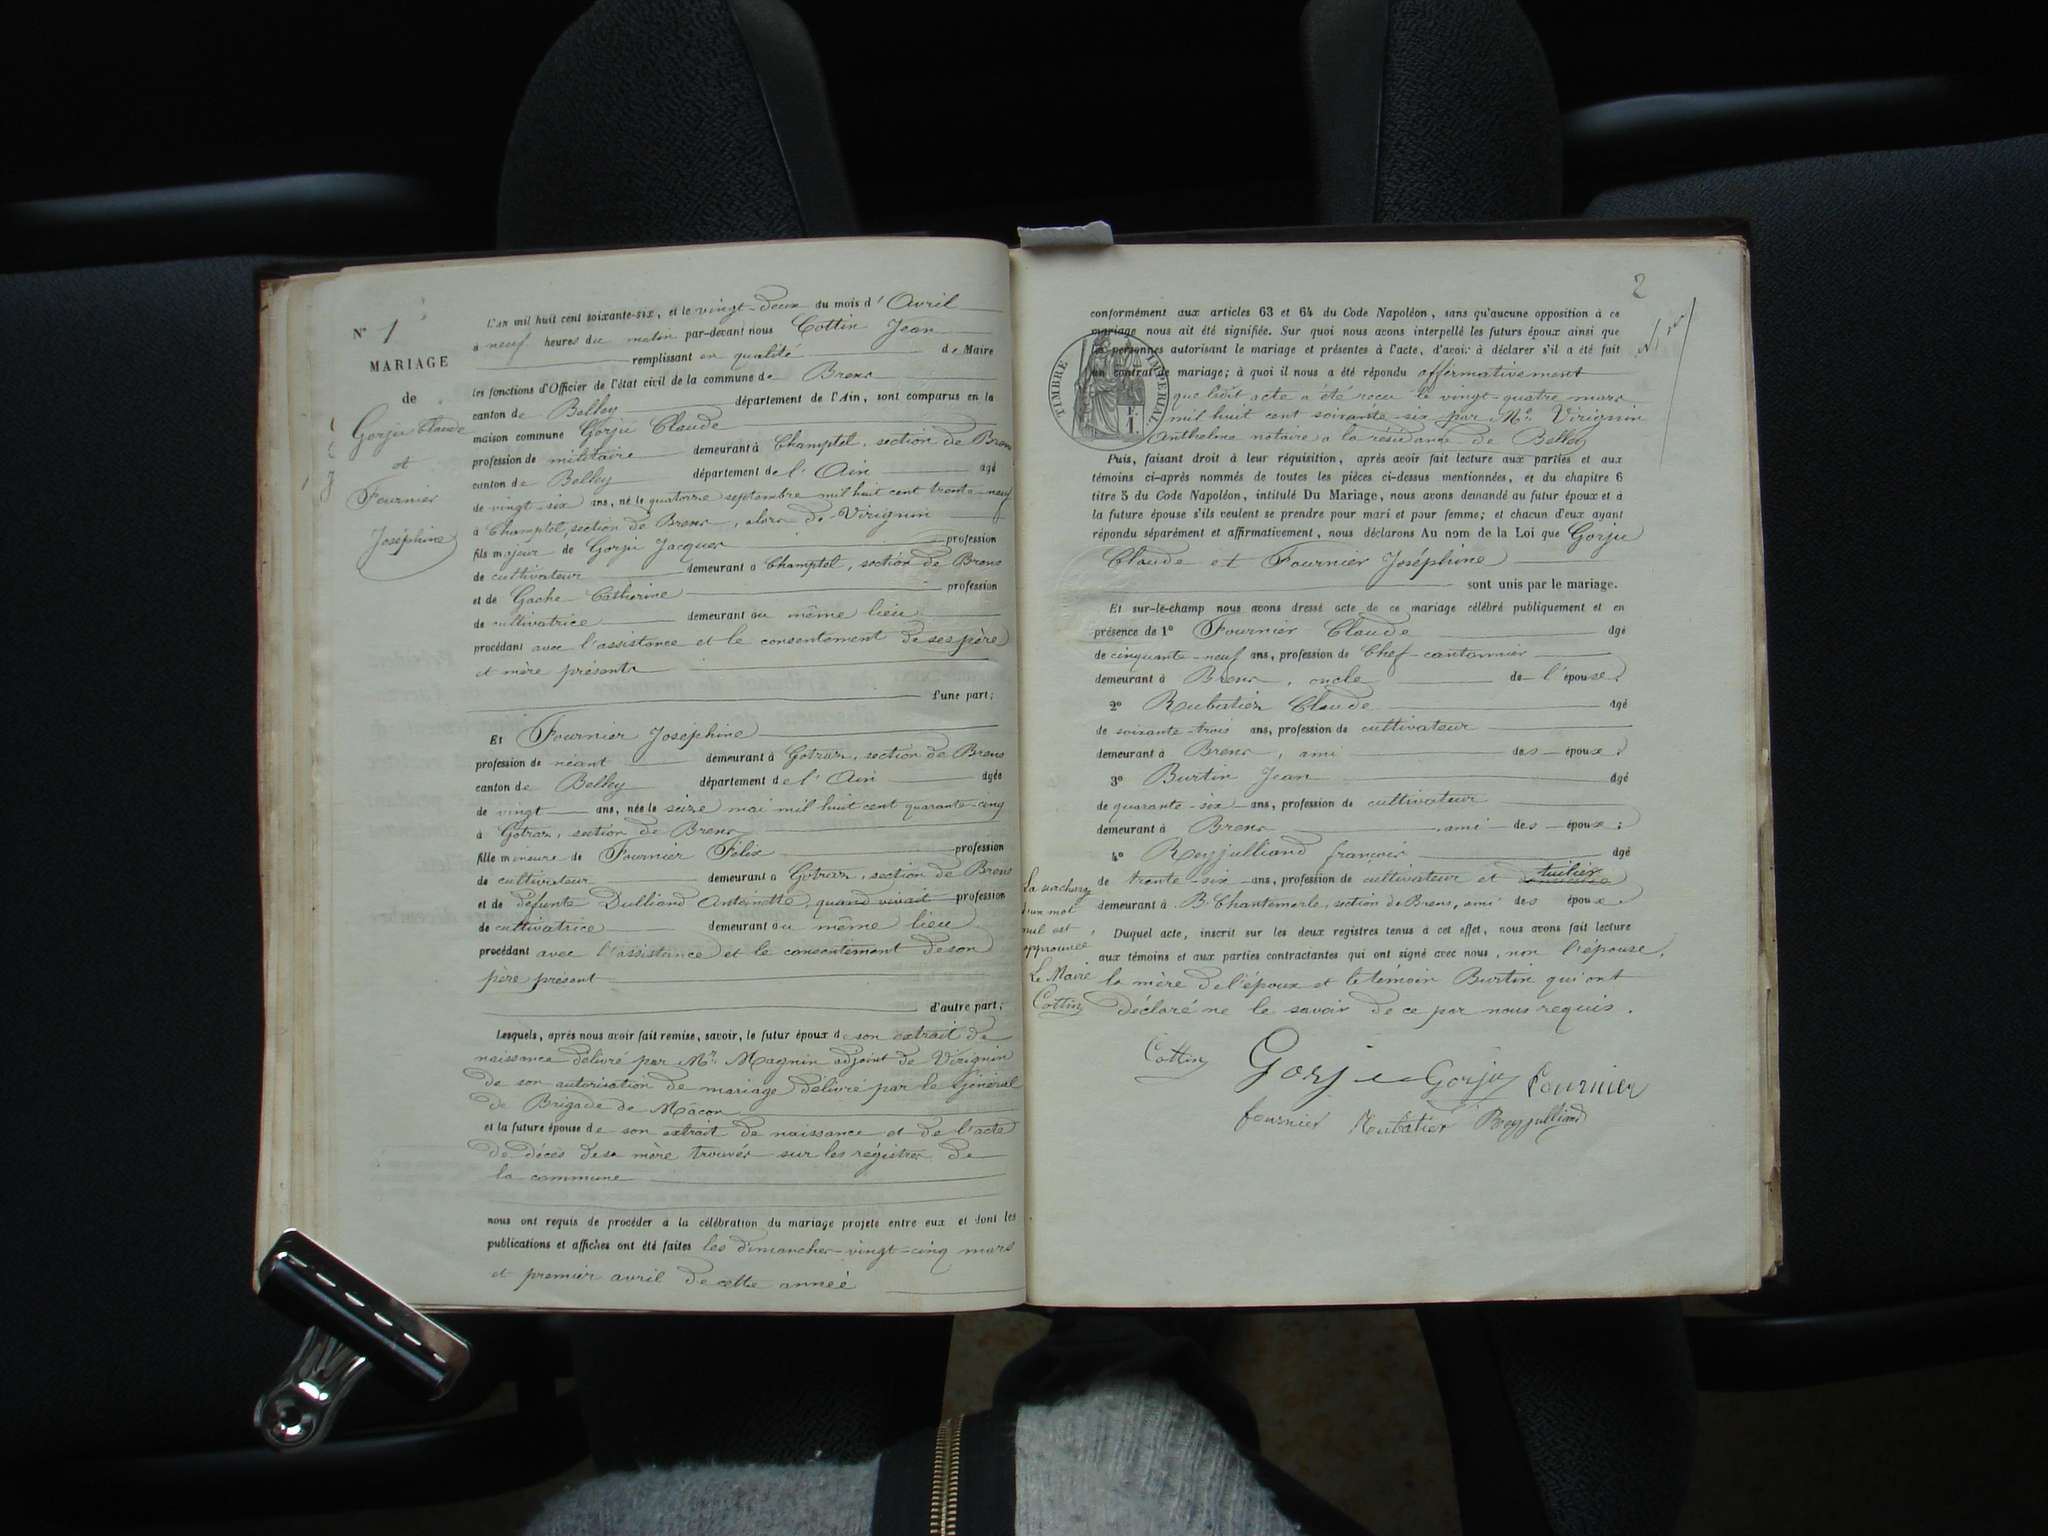 N° 1
MARIAGE
de
Gorju Claude
et
Fournier
Joséphine
L'an mil huit cent soixante-six, et le vingt-deux du mois d'Avril
à neuf heures du matin par-devant nous Cottin Jean
remplissant en qualité de Maire
les fonctions d'Officier de l'état civil de la commune de Brens
canton de Belley département de l'Ain, sont comparus en la
maison commune Gorju Claude
profession de militaire demeurant à Champtel, section de Brens
canton de Belley département de l'Ain agé
de vingt-six ans, né le quatorze septembre mil huit cent trente-neuf
à Champtel, section de Brens, alors de Virignin
fils majeur de Gorju Jacques profession
de cultivateur demeurant à Champtel, section de Brens
et de Gache Catherine profession
de cultivatrice demeurant au même lieu
procédant avec l'assistance et le consentement de ses père
et mère présents
d'une part;
Et Fournier Joséphine
profession de néant demeurant à Gotraz, section de Brens
canton de Belley département de l'Ain agée
de vingt ans, née le seize mai mil huit cent quarante-cinq
à Gotraz, section de Brens
fille mineure de Fournier Félix profession
de cultivateur demeurant à Gotraz, section de Brens
et de défunte Dulliand Antoinette, quand vivait profession
de cultivatrice demeurant au même lieu
procédant avec l'assistance et le consentement de son
père présent
d'autre part;
Lesquels, après nous avoir fait remise, savoir, le futur époux de son extrait de
naissance délivré par Mr. Magnin adjoint de Virignin
de son autorisation de mariage délivré par le Général
de Brigade de Mâcon
et la future épouse de son extrait de naissance et de l'acte
de décès de sa mère trouvés sur les régistres de
la commune
nous ont requis de procéder à la célébration du mariage projeté entre eux et dont les
publications et affiches ont été faites les dimanches vingt-cinq mars
et premier avril de cette année
2
conformément aux articles 63 et 64 du Code Napoléon, sans qu'aucune opposition à ce
mariage nous ait été signifiée. Sur quoi nous avons interpellé les futurs époux ainsi que
les personnes autorisant le mariage et présentes à l'acte, d'avoir à déclarer s'il a été fait
un contrat de mariage; à quoi il nous a été répondu affirmativement
que ledit acte a été reçu le vingt-quatre mars
mil huit cent soixante-six par Me. Virignin
Anthelme notaire a la résidence de Belley
TIMBRE IMPERIAL
F.
1.
Puis, faisant droit à leur réquisition, après avoir fait lecture aux parties et aux
témoins ci-après nommés de toutes les pièces ci-dessus mentionnées, et du chapitre 6
titre 5 du Code Napoléon, intitulé Du Mariage, nous avons demandé au futur époux et à
la future épouse s'ils veulent se prendre pour mari et pour femme; et chacun d'eux ayant
répondu séparément et affirmativement, nous déclarons Au nom de la Loi que Gorju
Claude et Fournier Joséphine
sont unis par le mariage.
Et sur-le-champ nous avons dressé acte de ce mariage célébré publiquement et en
présence de 1° Fournier Claude agé
de cinquante-neuf ans, profession de Chef-cantonnier
demeurant à Brens, oncle de l'épouse;
2° Rubatier Claude agé
de soixante-trois ans, profession de cultivateur
demeurant à Brens, ami des époux;
3° Burtin Jean agé
de quarante-six ans, profession de cultivateur
demeurant à Brens, ami des époux;
4° Reyjulliand françois agé
de trente-six ans, profession de cultivateur et tuilier
demeurant à B. Chantemerle, section de Brens, ami des époux.
Duquel acte, inscrit sur les deux registres tenus à cet effet, nous avons fait lecture
aux témoins et aux parties contractantes qui ont signé avec nous, non l'épouse,
la mère de l'époux et le témoin Burtin qui ont
déclaré ne le savoir de ce par nous requis.
La surcharge
d'un mot
nul est
approuvée
Le Maire
Cottin
Cottin Gorju Gorju Fournier
fournier Roubatier Reyjulliand